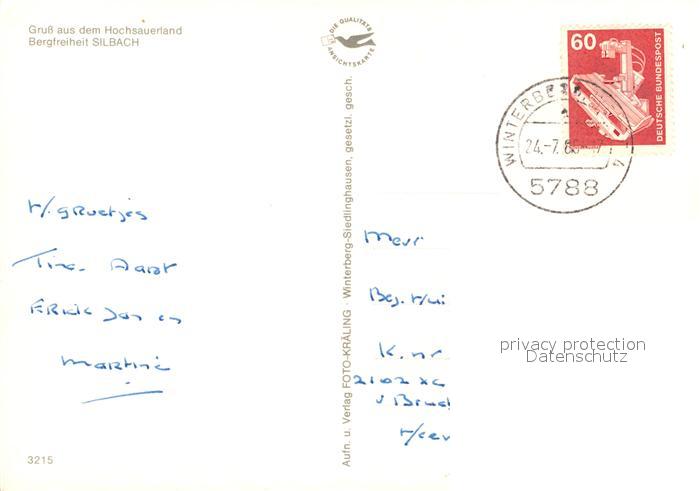 Gruß aus dem Hochsauerland
Bergfreiheit SILBACH
DIE QUALITÄTS
ANSICHTSKARTE
60
DEUTSCHE BUNDESPOST
WINTERBE
24.-7. 17
4
5788
Aufn. u. Verlag FOTO-KRÄLING · Winterberg-Siedlinghausen, gesetzl. gesch.
groetjes
Aart
Erick Jan en
Martine
K. nr.
2102
privacy protection
Datenschutz
3215